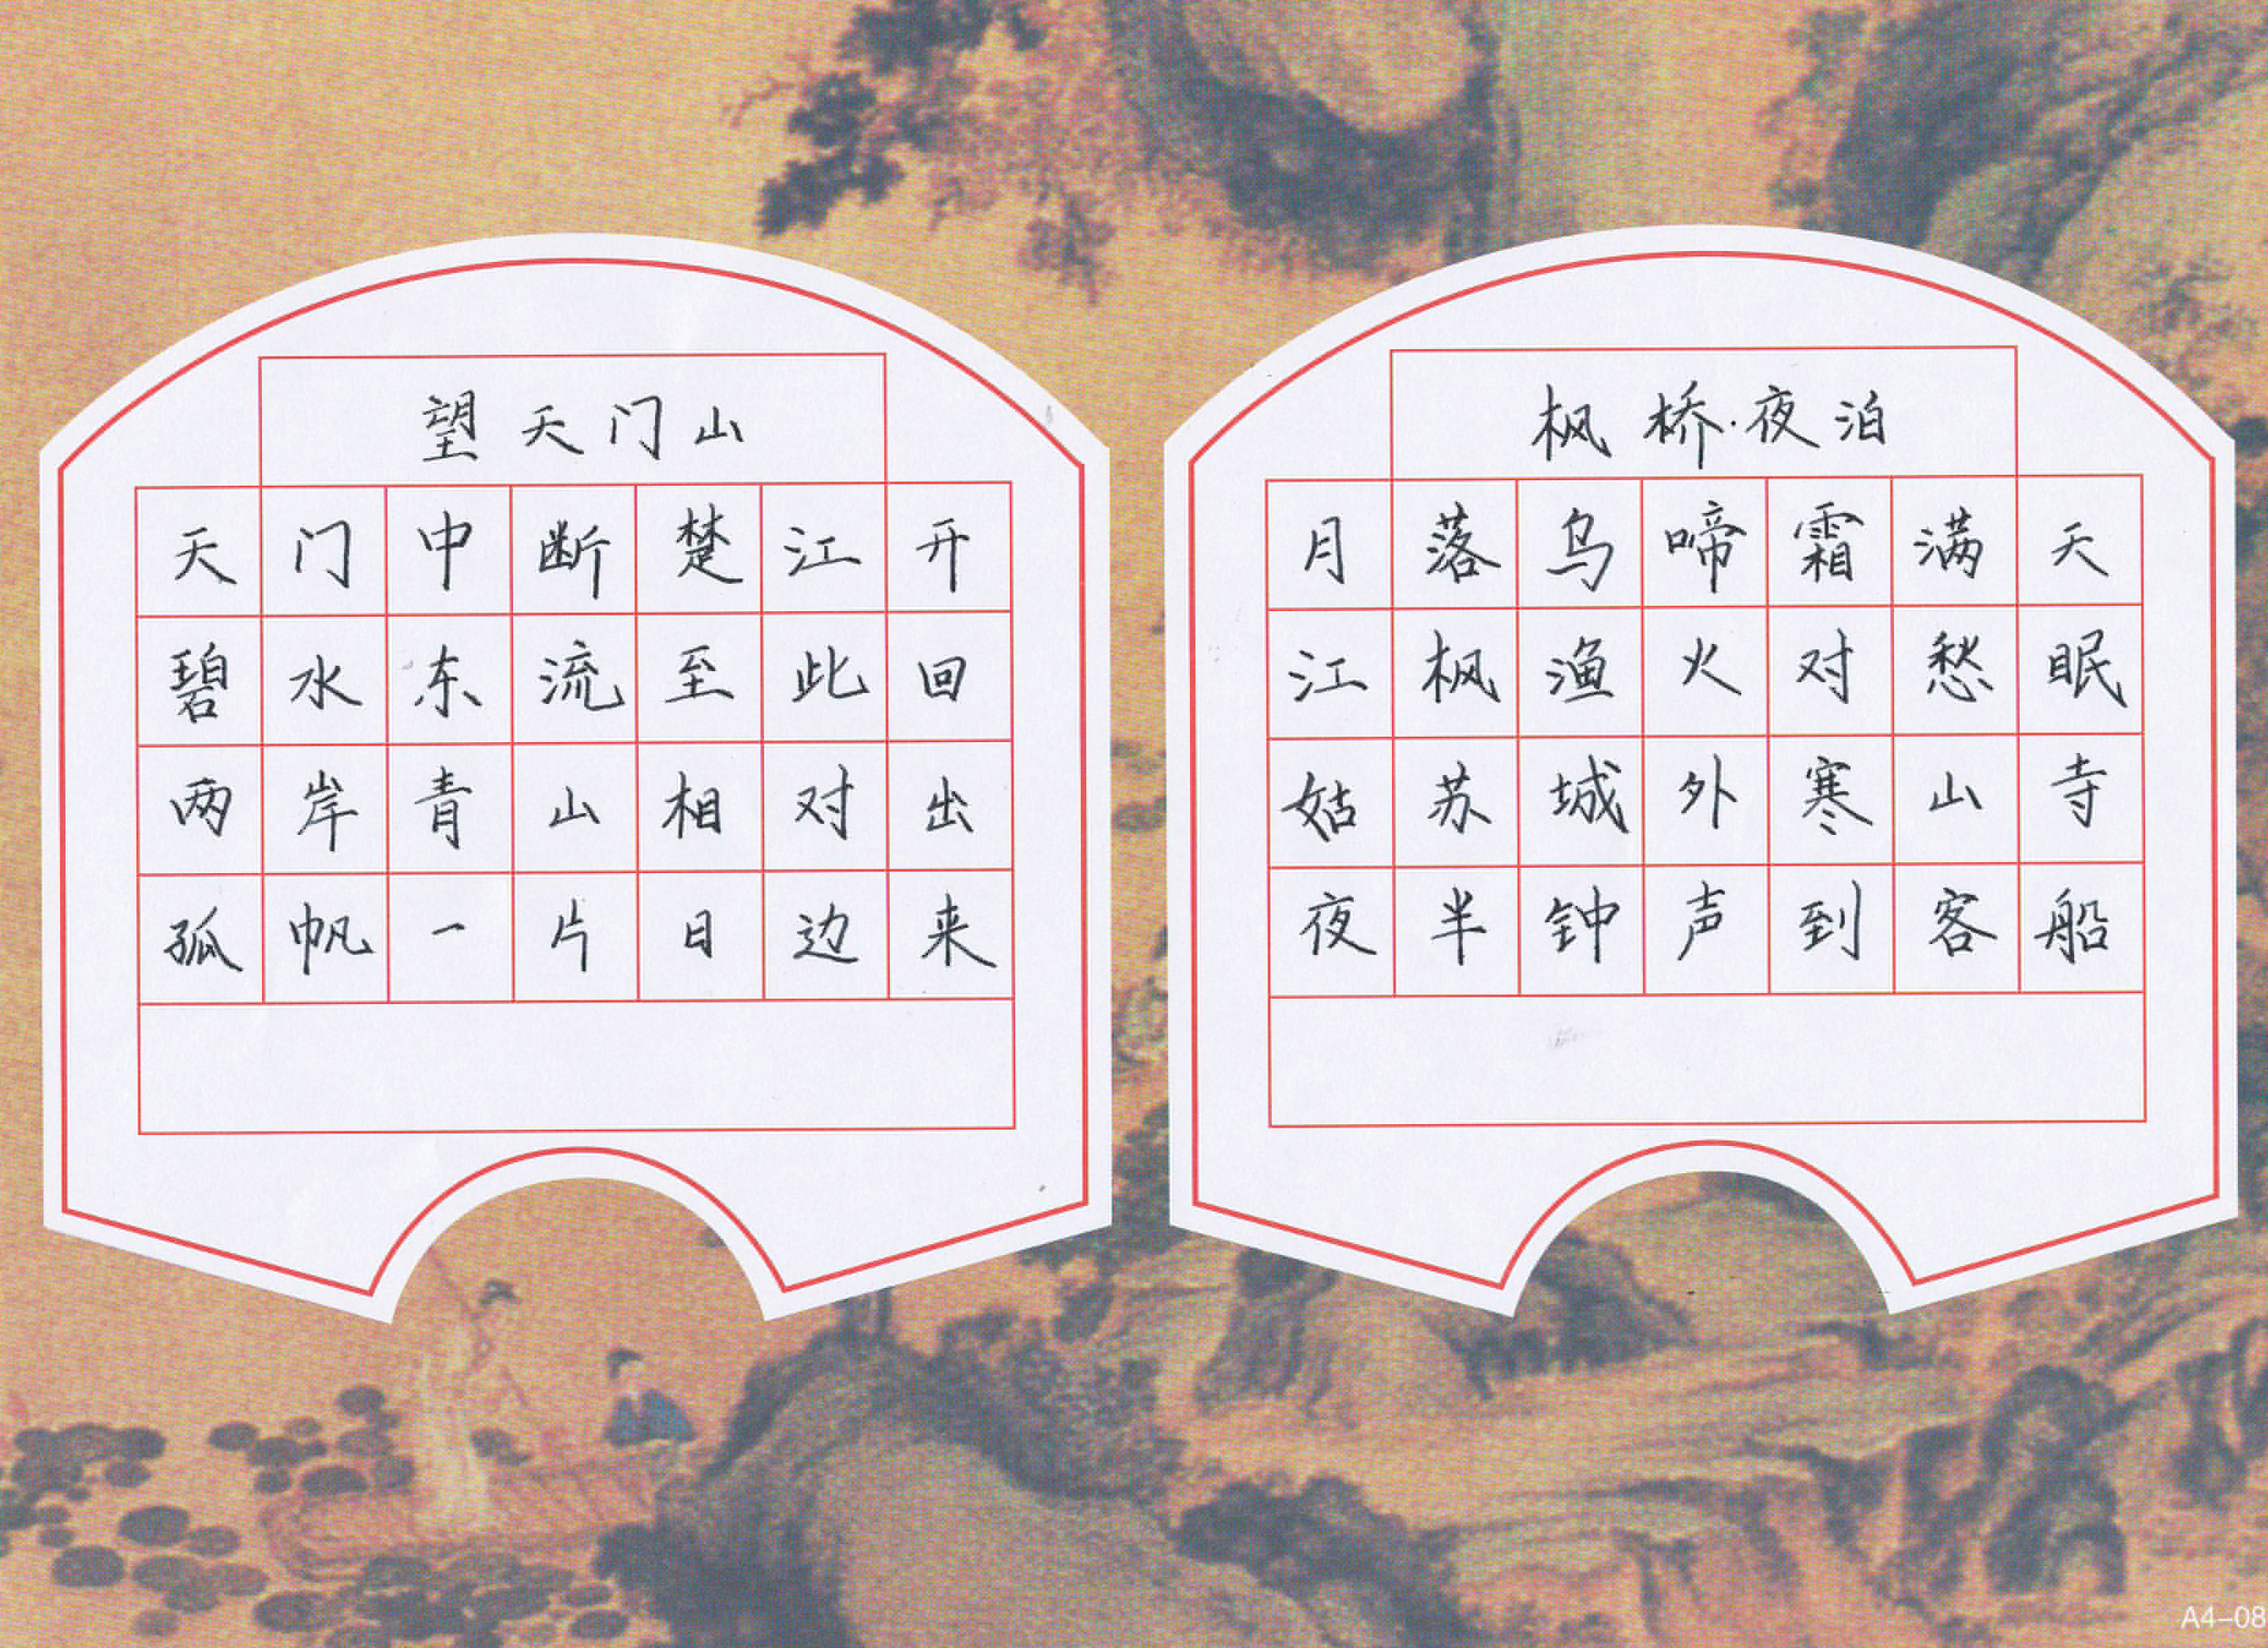 望天门山
天门中断楚江开
碧水东流至此回
两岸青山相对出
孤帆一片日边来
枫桥·夜泊
月落乌啼霜满天
江枫渔火对愁眠
姑苏城外寒山寺
夜半钟声到客船
A4-08